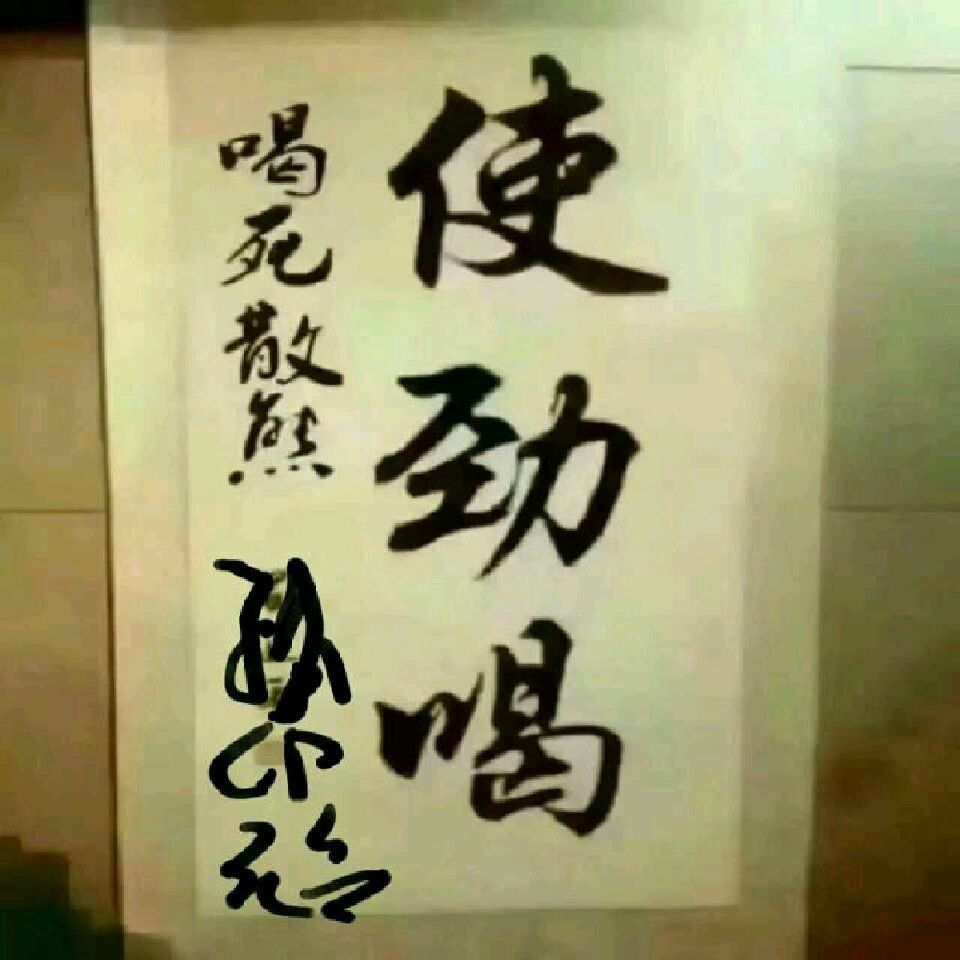 使劲喝
喝死散熊